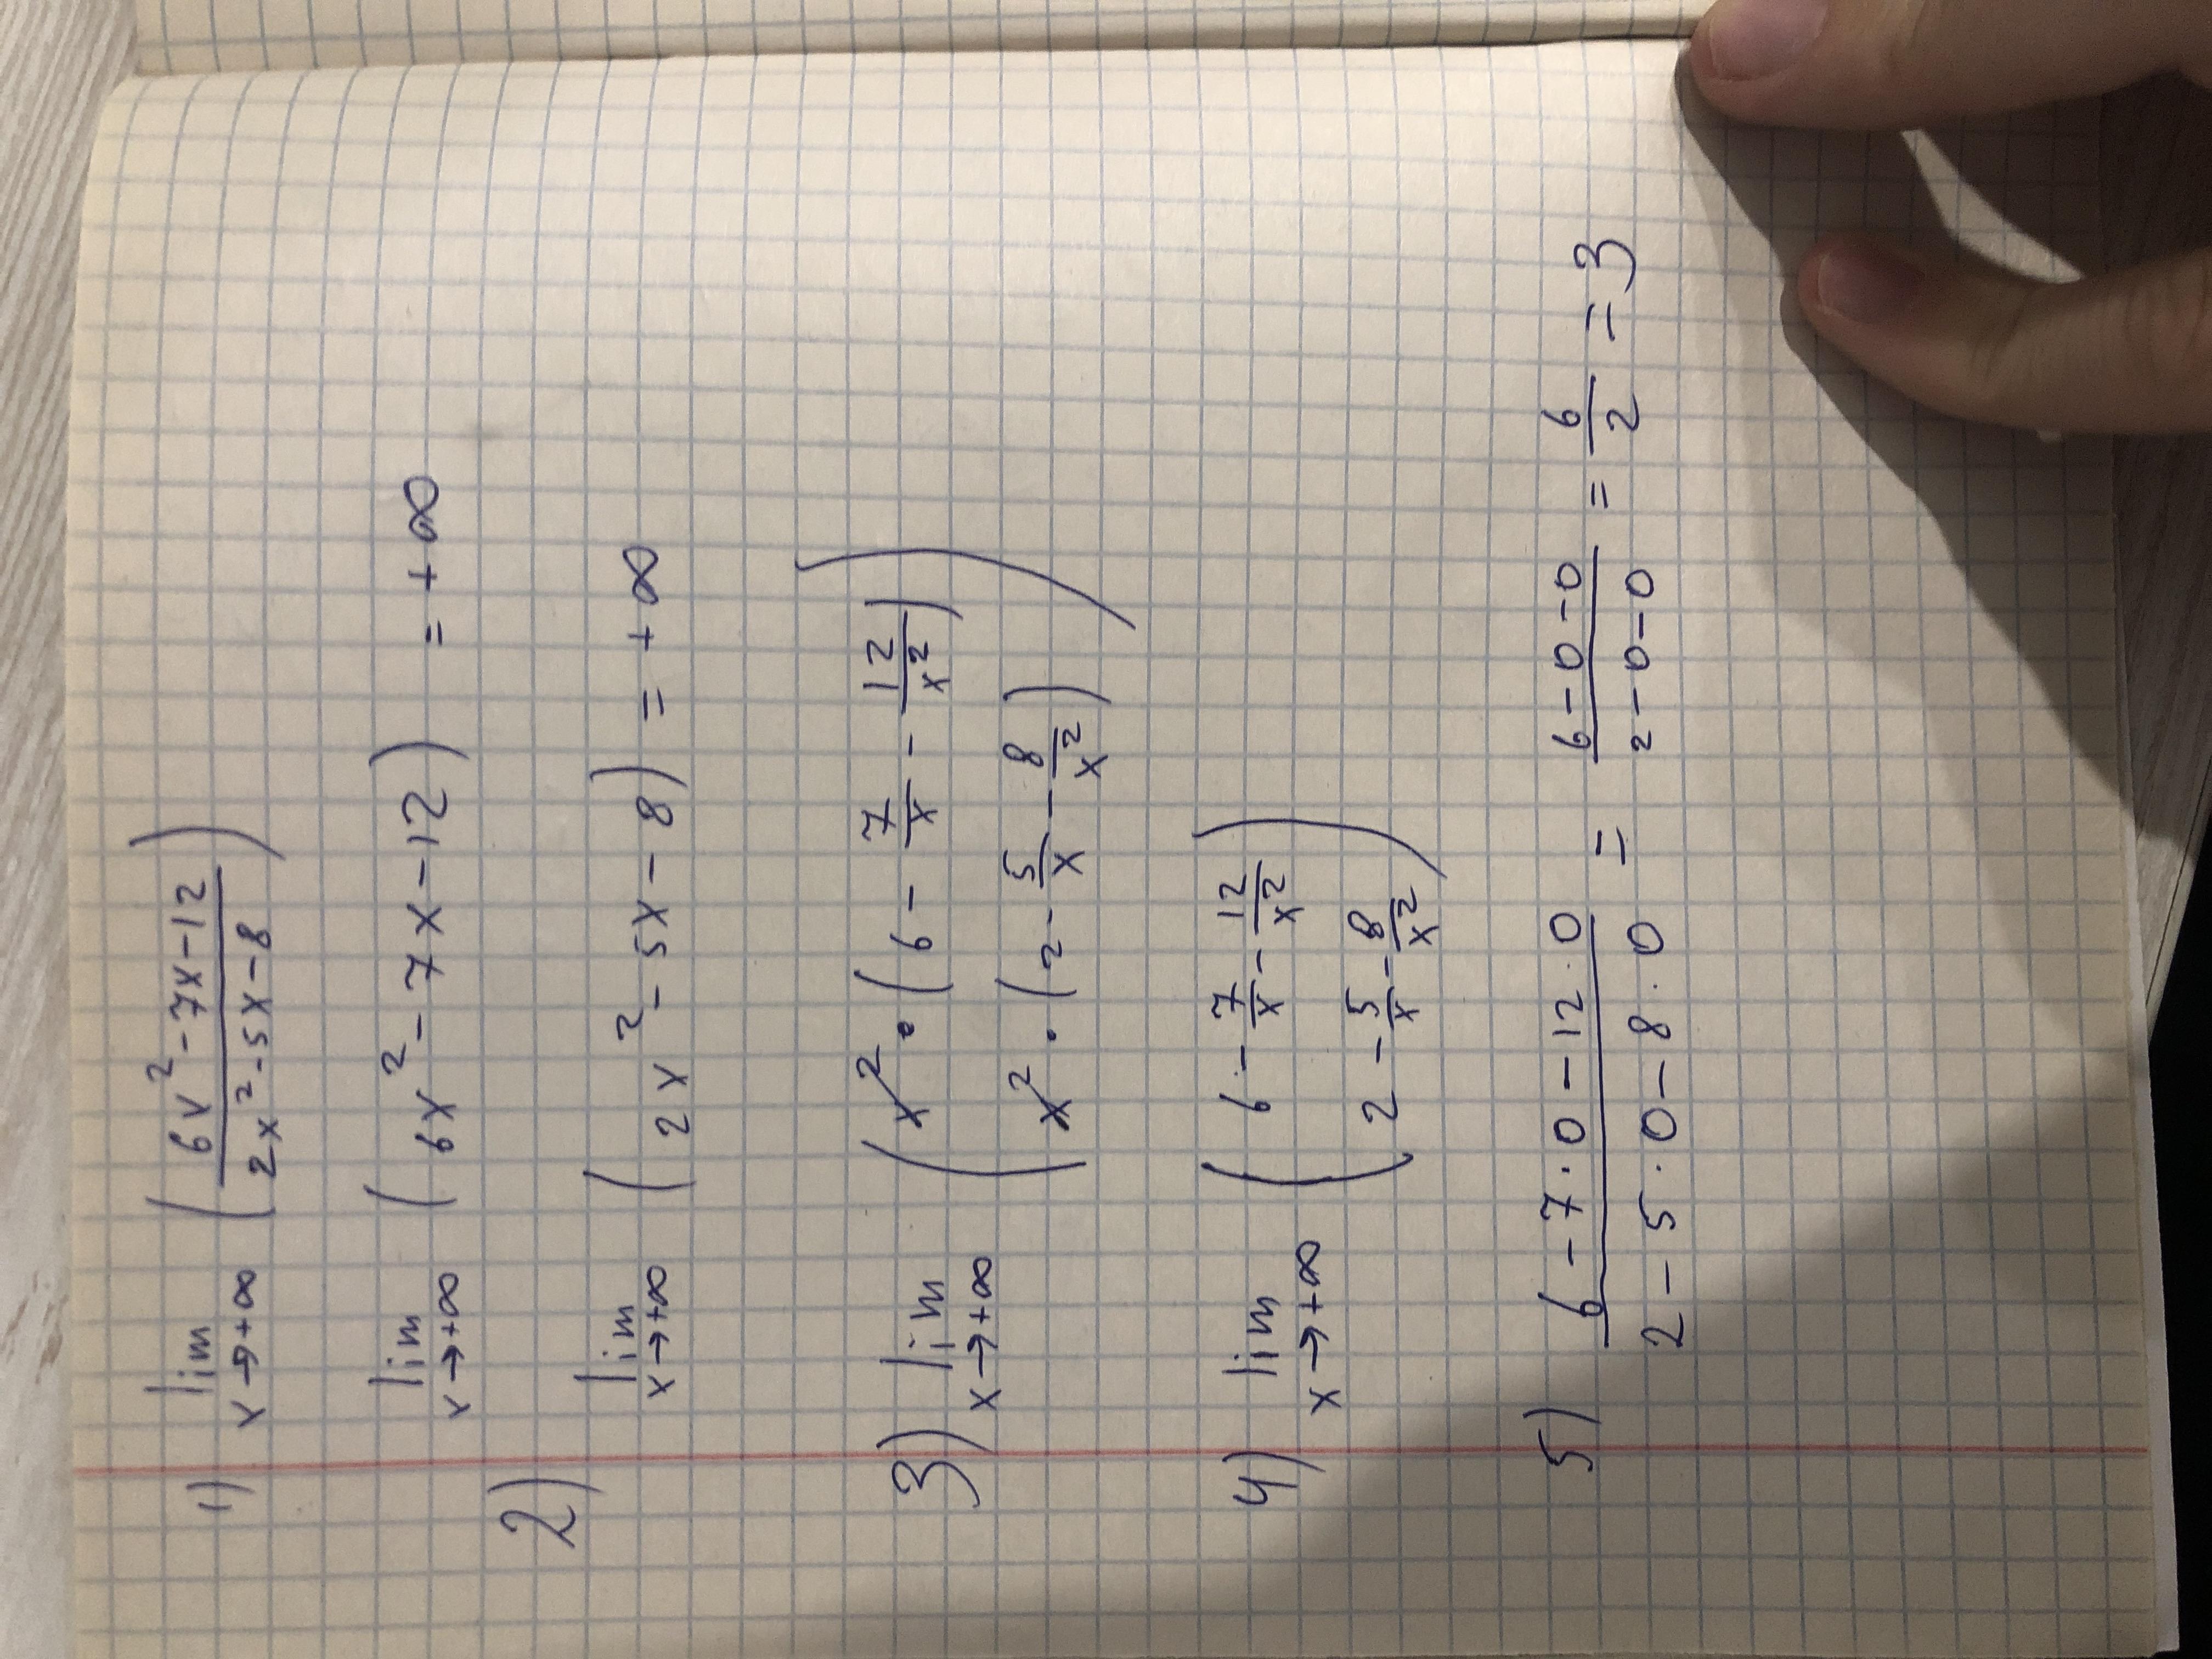 1) lim x→+∞ ( (6x² - 7x - 12) / (2x² - 5x - 8) )
lim x→+∞ (6x² - 7x - 12) = +∞
2)
lim x→+∞ (2x² - 5x - 8) = +∞
3) lim x→+∞ ( x² · (6 - 7/x - 12/x²) / x² · (2 - 5/x - 8/x²) )
4) lim x→+∞ ( (6 - 7/x - 12/x²) / (2 - 5/x - 8/x²) )
5) (6 - 7·0 - 12·0) / (2 - 5·0 - 8·0) = (6-0-0) / (2-0-0) = 6/2 = 3